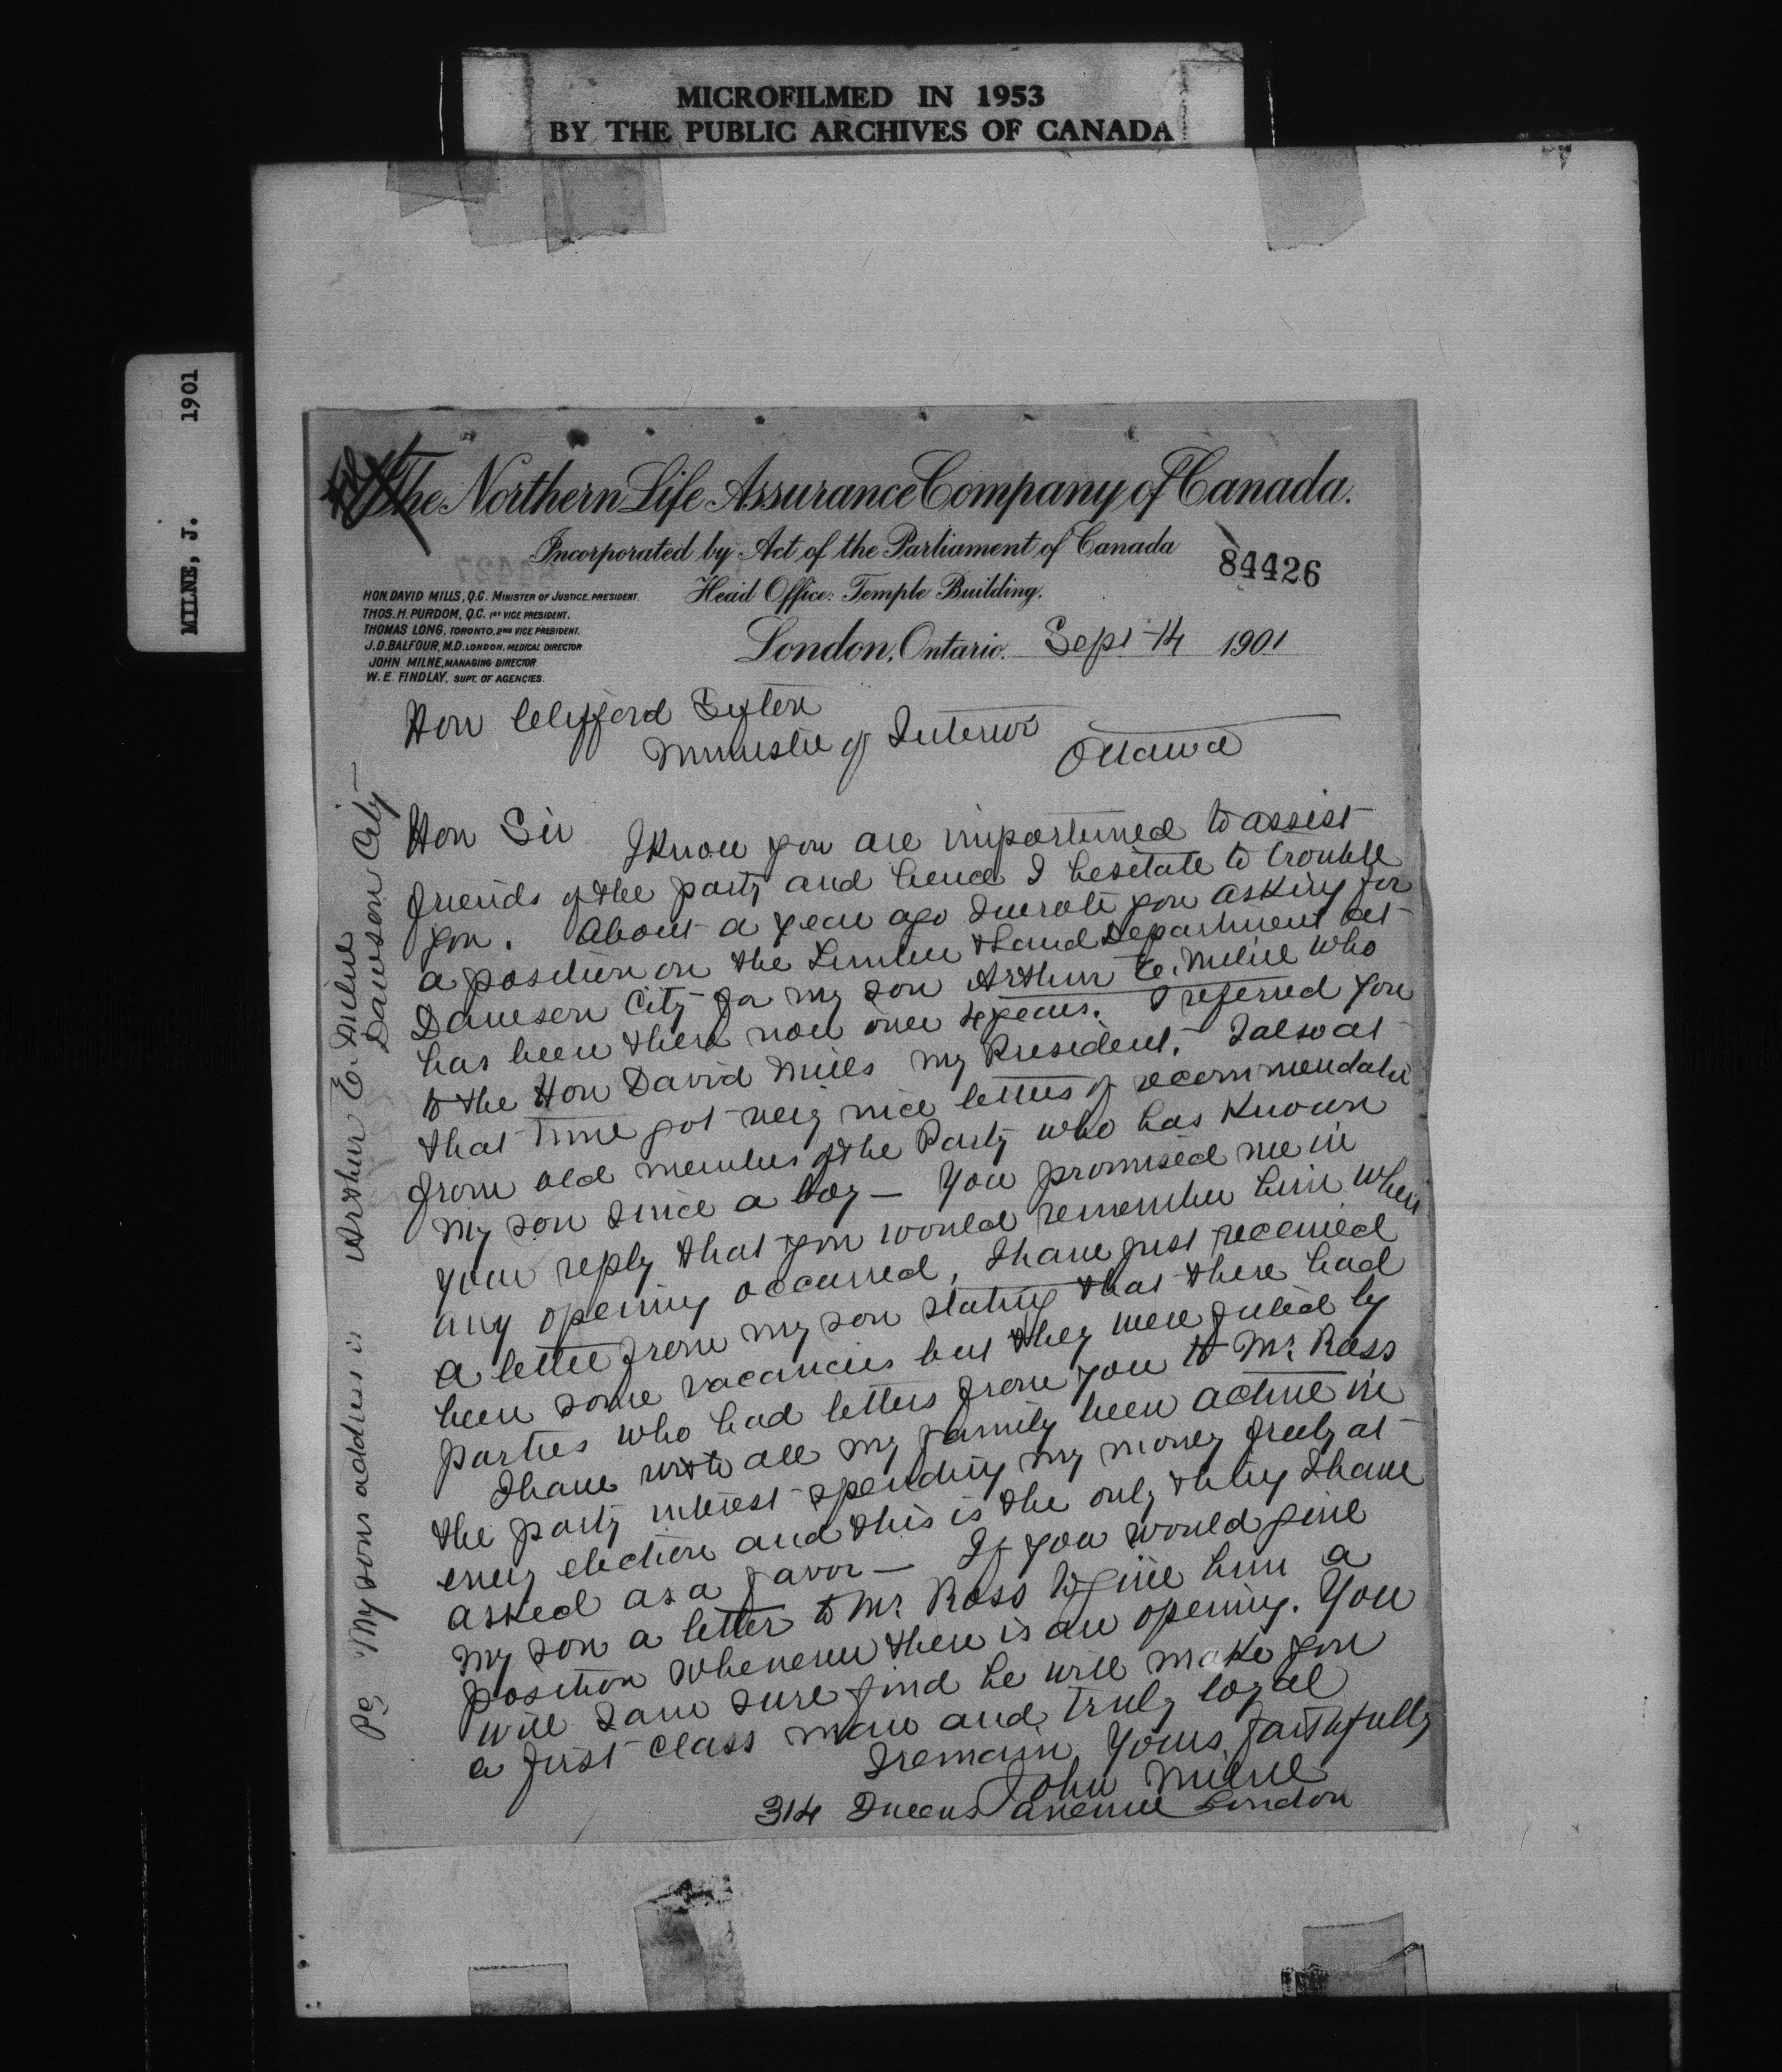 MICROFILMED IN 1953
BY THE PUBLIC ARCHIVES OF CANADA
MILNE, J. 1901
The Northern Life Assurance Company of Canada.
Incorporated by Act of the Parliament of Canada
84426
Head Office: Temple Building.
HON. DAVID MILLS, Q.C. MINISTER OF JUSTICE. PRESIDENT.
THOS. H. PURDOM, Q.C. 1ST VICE PRESIDENT.
THOMAS LONG, TORONTO, 2ND VICE PRESIDENT.
J.D. BALFOUR, M.D. LONDON, MEDICAL DIRECTOR
JOHN MILNE, MANAGING DIRECTOR
W. E. FINDLAY, SUPT. OF AGENCIES.
London, Ontario. Sept 14 1901
Hon Clifford Sifton
Minister of Interior
Ottawa
Hon Sir I know you are importuned to assist
friends of the party and hence I hesitate to trouble
you. About a year ago I wrote you asking for
a position on the Timber & Land Department at
Dawson City for my son Arthur E. Milne who
has been there now over 4 years. I referred you
to the Hon David Mills my President. I also at
that time got very nice letters of recommendation
from old members of the Party who has known
my son since a boy — You promised me in
your reply that you would remember him when
any opening occurred, I have just received
a letter from my son stating that there had
been some vacancies but they were filled by
parties who had letters from you to Mr. Ross
I have with all my family been active in
the party interest spending my money freely at
every election and this is the only thing I have
asked as a favor — If you would give
my son a letter to Mr. Ross to give him a
position whenever there is an opening. You
will I am sure find he will make you
a first class man and truly loyal
I remain Yours faithfully
John Milne
314 Queens Avenue London
PS My sons address is Arthur E. Milne
Dawson City